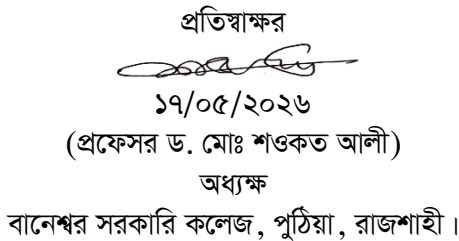 প্রতিস্বাক্ষর
১৭/০৫/২০২৬
(প্রফেসর ড. মোঃ শওকত আলী)
অধ্যক্ষ
বানেশ্বর সরকারি কলেজ, পুঠিয়া, রাজশাহী।